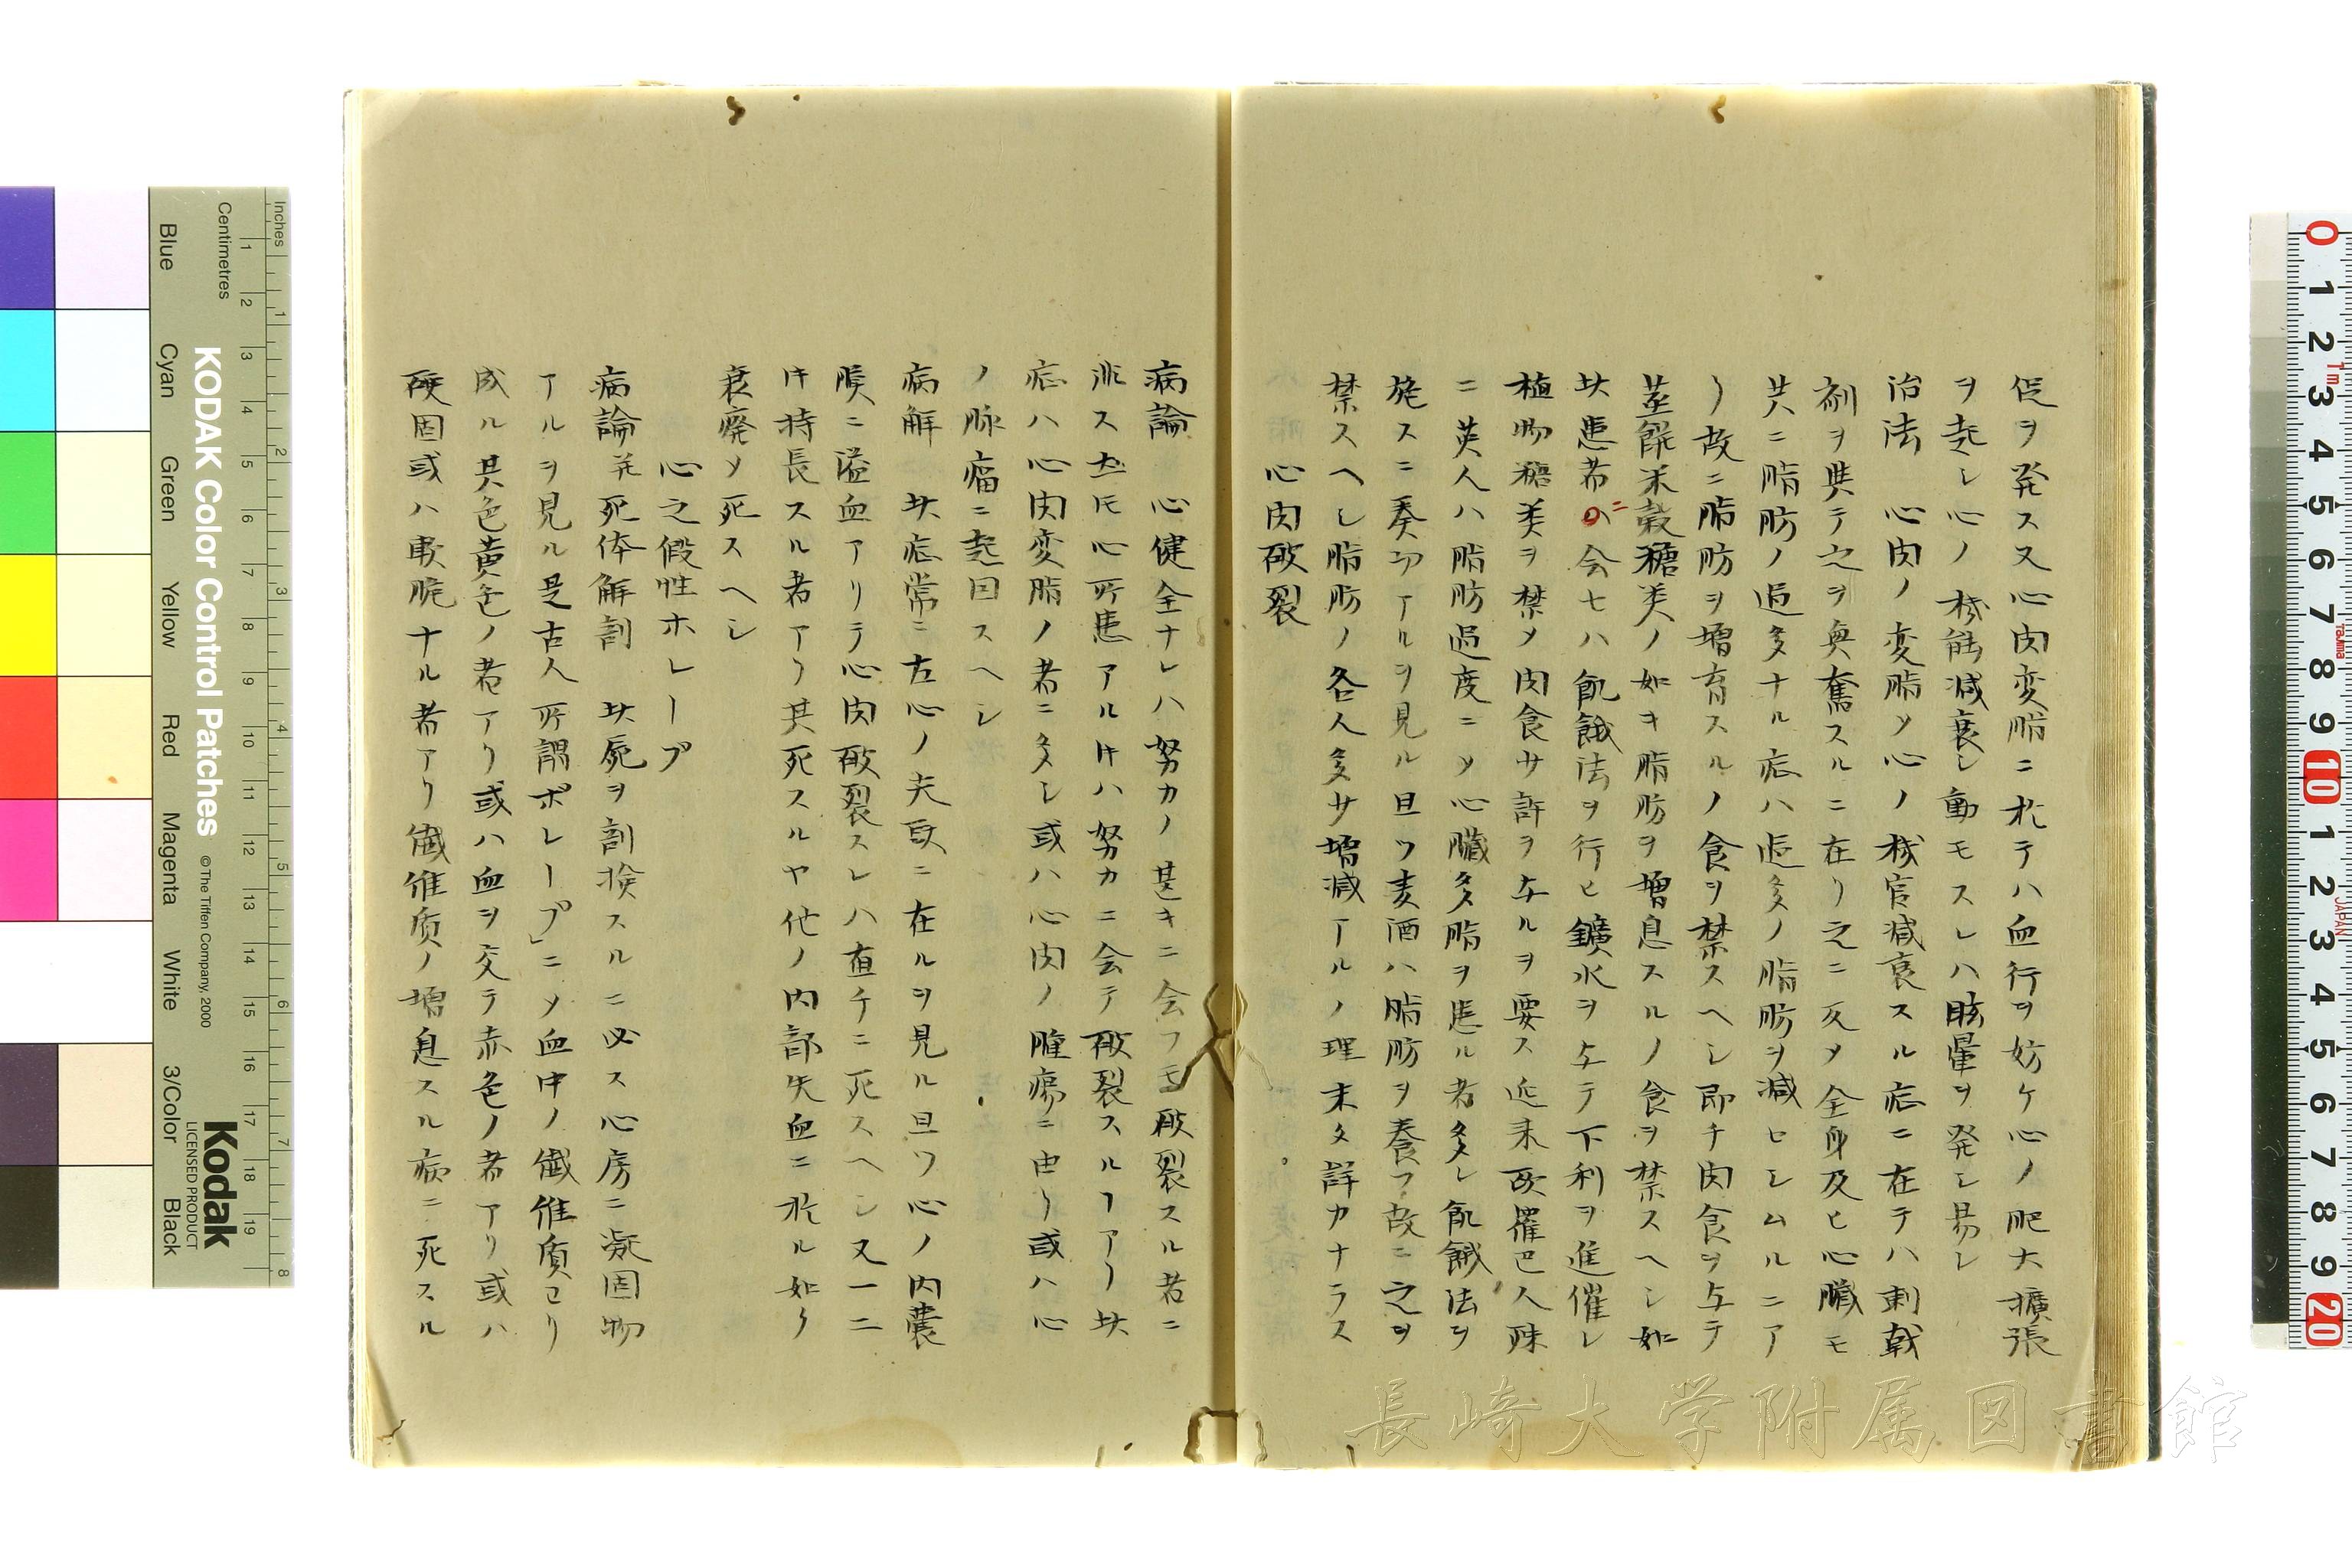 促ヲ発ス又心肉変脂ニ於テハ血行ヲ妨ケ心ノ肥大擴張
ヲ起シ心ノ機能減衰シ動モスレハ眩暈ヲ発シ易シ
治法 心肉ノ変脂メ心ノ機官減衰スル症ニ在テハ刺戟
剤ヲ與テ之ヲ興奮スルニ在リ之ニ反メ全身及ヒ心臓モ
共ニ脂肪ノ過多ナル症ハ過多ノ脂肪ヲ減セシムルニア
リ故ニ脂肪ヲ増育スルノ食ヲ禁スヘシ即チ肉食ヲ与テ
蒸餅米穀糖类ノ如キ脂肪ヲ増息スルノ食ヲ禁スヘシ如
此患者ニハ会セハ飢餓法ヲ行ヒ鑛水ヲ与テ下利ヲ進催シ
植物糖类ヲ禁メ肉食サ許ヲ与ルヲ要ス近来欧羅巴人殊
ニ英人ハ脂肪過度ニメ心臓多脂ヲ患ル者多シ飢餓法ヲ
施スニ奏功アルヲ見ル且ツ麦酒ハ脂肪ヲ養フ故ニ之ヲ
禁スヘシ脂肪ノ各人多サ増減アルノ理未タ詳カナラス
心肉破裂
病論 心健全ナレハ努力ノ甚キニ会フモ破裂スル者ニ
非ス𪜈心所患アル𪜈ハ努力ニ会テ破裂スルヿアリ此
症ハ心肉変脂ノ者ニ多シ或ハ心肉ノ腫瘍ニ由リ或ハ心
ノ脉瘤ニ起因スヘシ
病解 此症常ニ左心ノ尖𠮟ニ在ルヲ見ル且ツ心ノ内嚢
ニ溢血アリテ心肉破裂スレハ直チニ死スヘシ又一二
時持長スル者アリ其死スルヤ他ノ内部失血ニ於ル如ク
衰廃メ死スヘシ
心之假性ホレープ
病論并死体解剖 此屍ヲ剖検スルニ必ス心房ニ凝固物
アルヲ見ル是古人所謂ポレープ」ニメ血中ノ繊維質ヨリ
成ル其色黄色ノ者アリ或ハ血ヲ交テ赤色ノ者アリ或ハ
硬固或ハ軟脆ナル者アリ繊維質ノ増息スル病ニ死スル
Inches
Centimetres
KODAK Color Control Patches
© The Tiffen Company, 2000
Kodak
LICENSED PRODUCT
Blue
Cyan
Green
Yellow
Red
Magenta
White
3/Color
Black
長崎大学附属図書館